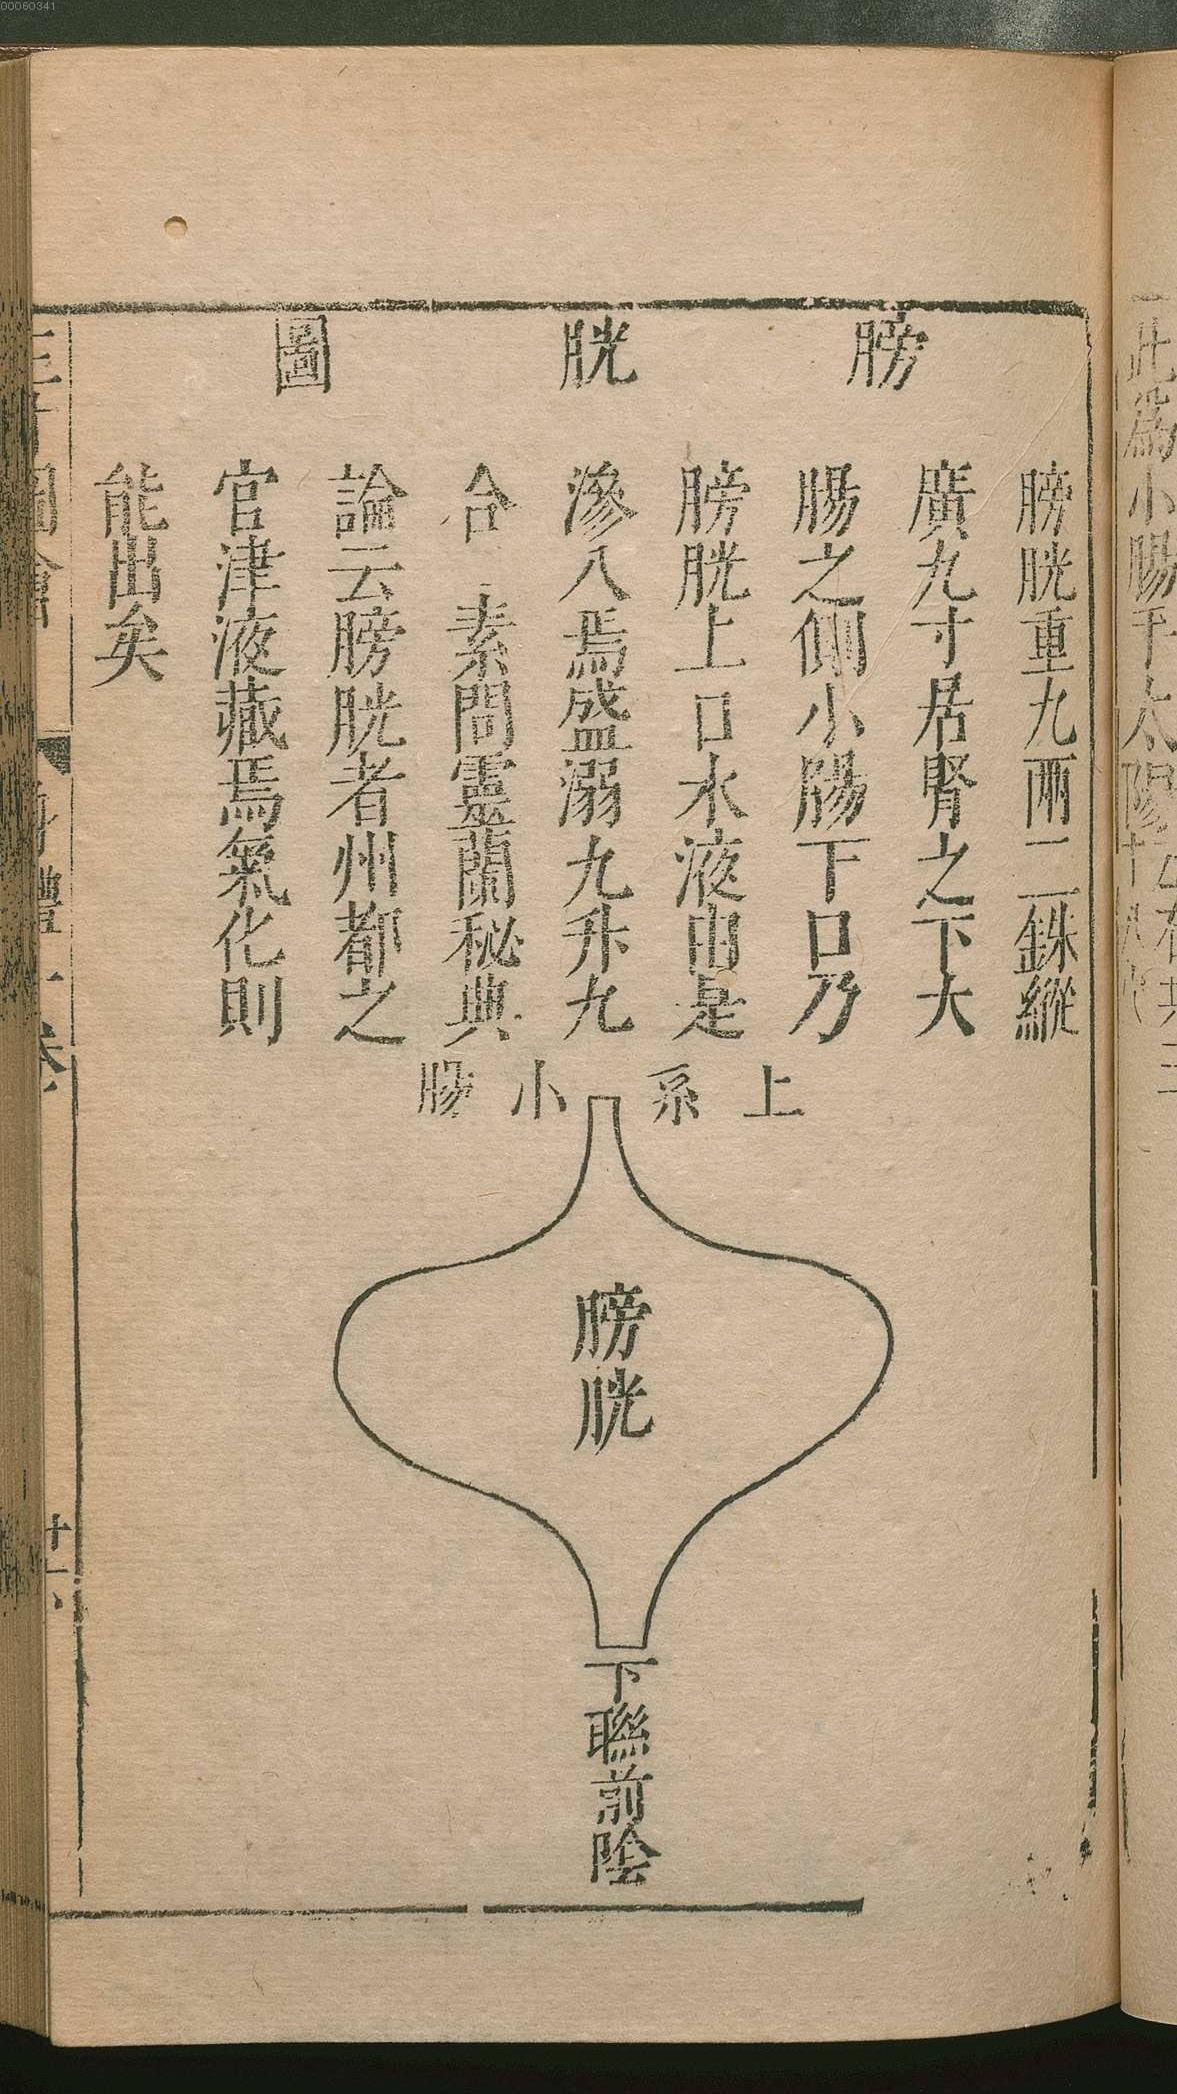 00060341
膀胱圖
膀胱重九兩二銖縱
廣九寸居腎之下大
腸之側小腸下口乃
膀胱上口水液由是
滲入焉盛溺九升九
合　素問靈蘭秘典
論云膀胱者州都之
官津液藏焉氣化則
能出矣
上系小腸
膀胱
下聯前陰
此為小腸手太陽